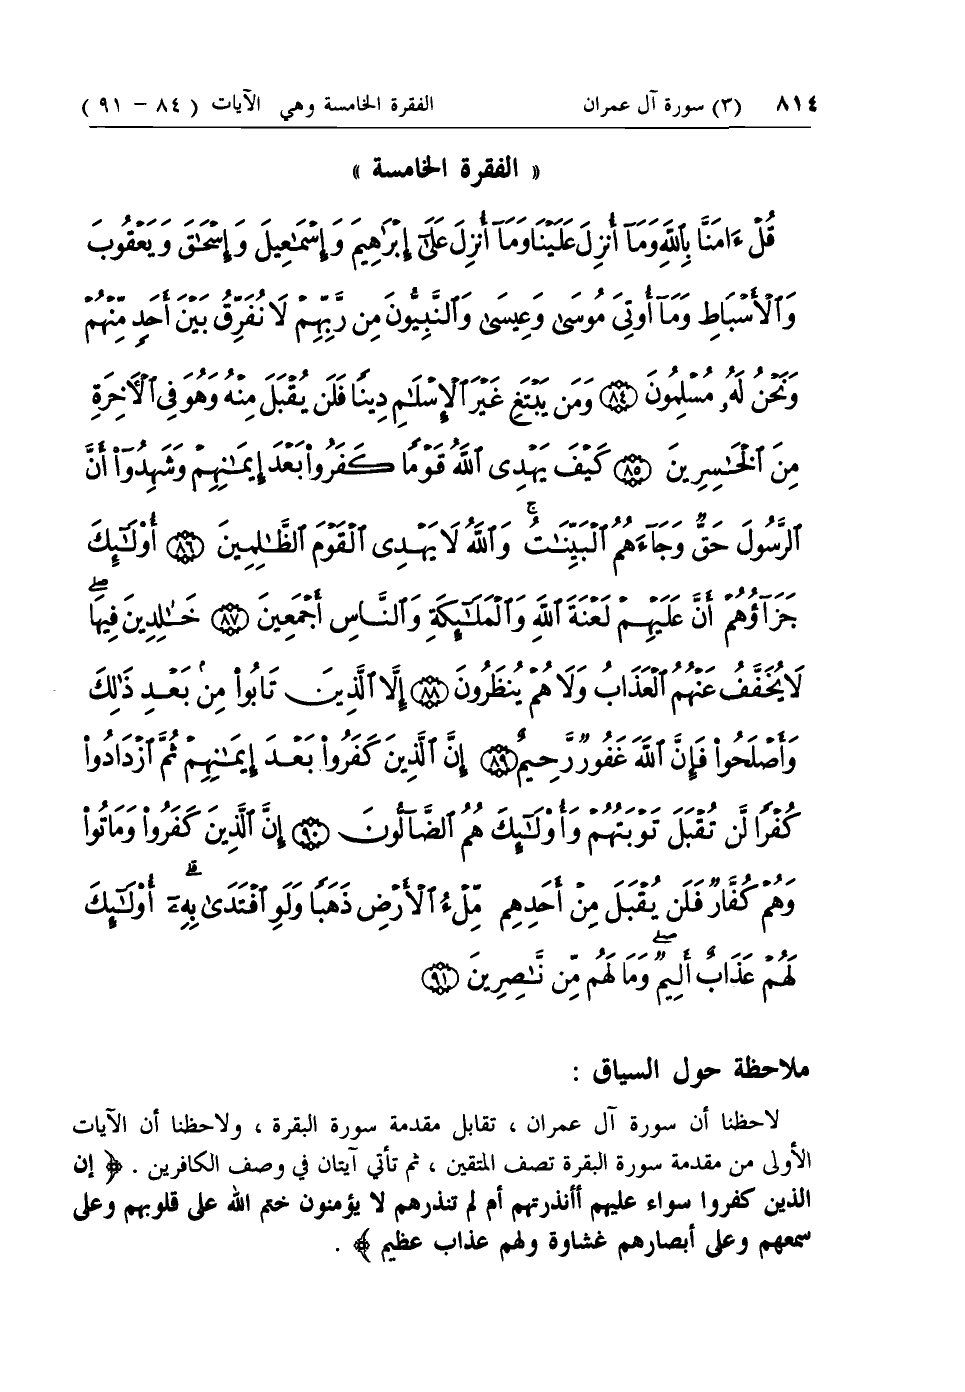 ٨١٤ (٣) سورة آل عمران الفقرة الخامسة وهي الآيات ( ٨٤ – ٩١ )
« الفقرة الخامسة »
قُلْ ءَامَنَّا بِٱللَّهِ وَمَآ أُنزِلَ عَلَيْنَا وَمَآ أُنزِلَ عَلَىٰٓ إِبْرَٰهِيمَ وَإِسْمَٰعِيلَ وَإِسْحَٰقَ وَيَعْقُوبَ
وَٱلْأَسْبَاطِ وَمَآ أُوتِىَ مُوسَىٰ وَعِيسَىٰ وَٱلنَّبِيُّونَ مِن رَّبِّهِمْ لَا نُفَرِّقُ بَيْنَ أَحَدٍ مِّنْهُمْ
وَنَحْنُ لَهُۥ مُسْلِمُونَ ٨٤ وَمَن يَبْتَغِ غَيْرَ ٱلْإِسْلَٰمِ دِينًا فَلَن يُقْبَلَ مِنْهُ وَهُوَ فِى ٱلْأَخِرَةِ
مِنَ ٱلْخَٰسِرِينَ ٨٥ كَيْفَ يَهْدِى ٱللَّهُ قَوْمًا كَفَرُوا۟ بَعْدَ إِيمَٰنِهِمْ وَشَهِدُوٓا۟ أَنَّ
ٱلرَّسُولَ حَقٌّ وَجَآءَهُمُ ٱلْبَيِّنَٰتُ ۚ وَٱللَّهُ لَا يَهْدِى ٱلْقَوْمَ ٱلظَّٰلِمِينَ ٨٦ أُو۟لَٰٓئِكَ
جَزَآؤُهُمْ أَنَّ عَلَيْهِمْ لَعْنَةَ ٱللَّهِ وَٱلْمَلَٰٓئِكَةِ وَٱلنَّاسِ أَجْمَعِينَ ٨٧ خَٰلِدِينَ فِيهَا ۖ
لَا يُخَفَّفُ عَنْهُمُ ٱلْعَذَابُ وَلَا هُمْ يُنظَرُونَ ٨٨ إِلَّا ٱلَّذِينَ تَابُوا۟ مِنۢ بَعْدِ ذَٰلِكَ
وَأَصْلَحُوا۟ فَإِنَّ ٱللَّهَ غَفُورٌ رَّحِيمٌ ٨٩ إِنَّ ٱلَّذِينَ كَفَرُوا۟ بَعْدَ إِيمَٰنِهِمْ ثُمَّ ٱزْدَادُوا۟
كُفْرًا لَّن تُقْبَلَ تَوْبَتُهُمْ وَأُو۟لَٰٓئِكَ هُمُ ٱلضَّآلُّونَ ٩٠ إِنَّ ٱلَّذِينَ كَفَرُوا۟ وَمَاتُوا۟
وَهُمْ كُفَّارٌ فَلَن يُقْبَلَ مِنْ أَحَدِهِم مِّلْءُ ٱلْأَرْضِ ذَهَبًا وَلَوِ ٱفْتَدَىٰ بِهِۦٓ ۗ أُو۟لَٰٓئِكَ
لَهُمْ عَذَابٌ أَلِيمٌ ۖ وَمَا لَهُم مِّن نَّٰصِرِينَ ٩١
ملاحظة حول السياق :
لاحظنا أن سورة آل عمران ، تقابل مقدمة سورة البقرة ، ولاحظنا أن الآيات
الأولى من مقدمة سورة البقرة تصف المتقين ، ثم تأتي آيتان في وصف الكافرين . ﴿ إن
الذين كفروا سواء عليهم أأنذرتهم أم لم تنذرهم لا يؤمنون ختم الله على قلوبهم وعلى
سمعهم وعلى أبصارهم غشاوة ولهم عذاب عظيم ﴾ .